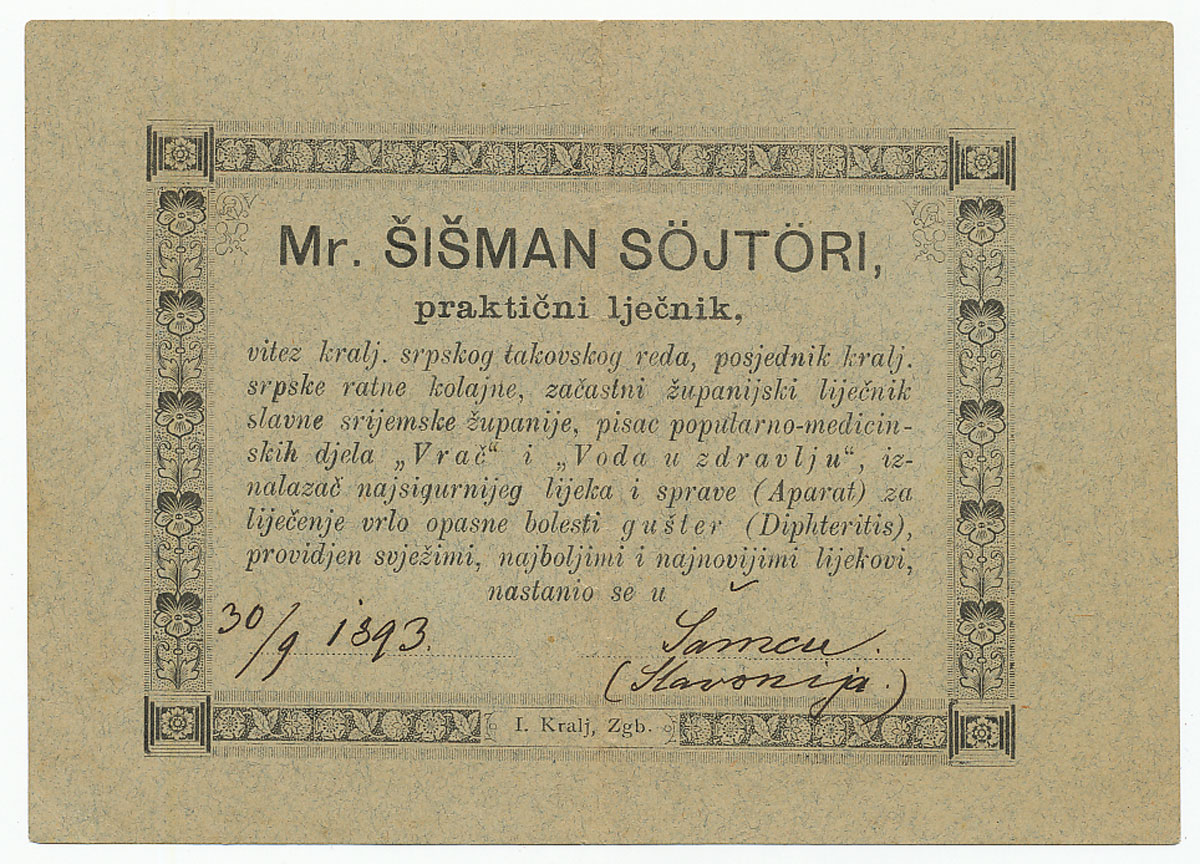 Mr. ŠIŠMAN SÖJTÖRI,
praktični lječnik,
vitez kralj. srpskog takovskog reda, posjednik kralj.
srpske ratne kolajne, začastni županijski liječnik
slavne srijemske županije, pisac popularno-medicin-
skih djela „Vrač“ i „Voda u zdravlju“, iz-
nalazač najsigurnijeg lijeka i sprave (Aparat) za
liječenje vrlo opasne bolesti gušter (Diphteritis),
providjen svježimi, najboljimi i najnovijimi lijekovi,
nastanio se u
30/9 1893. Šamcu.
(Slavonija.)
I. Kralj, Zgb.